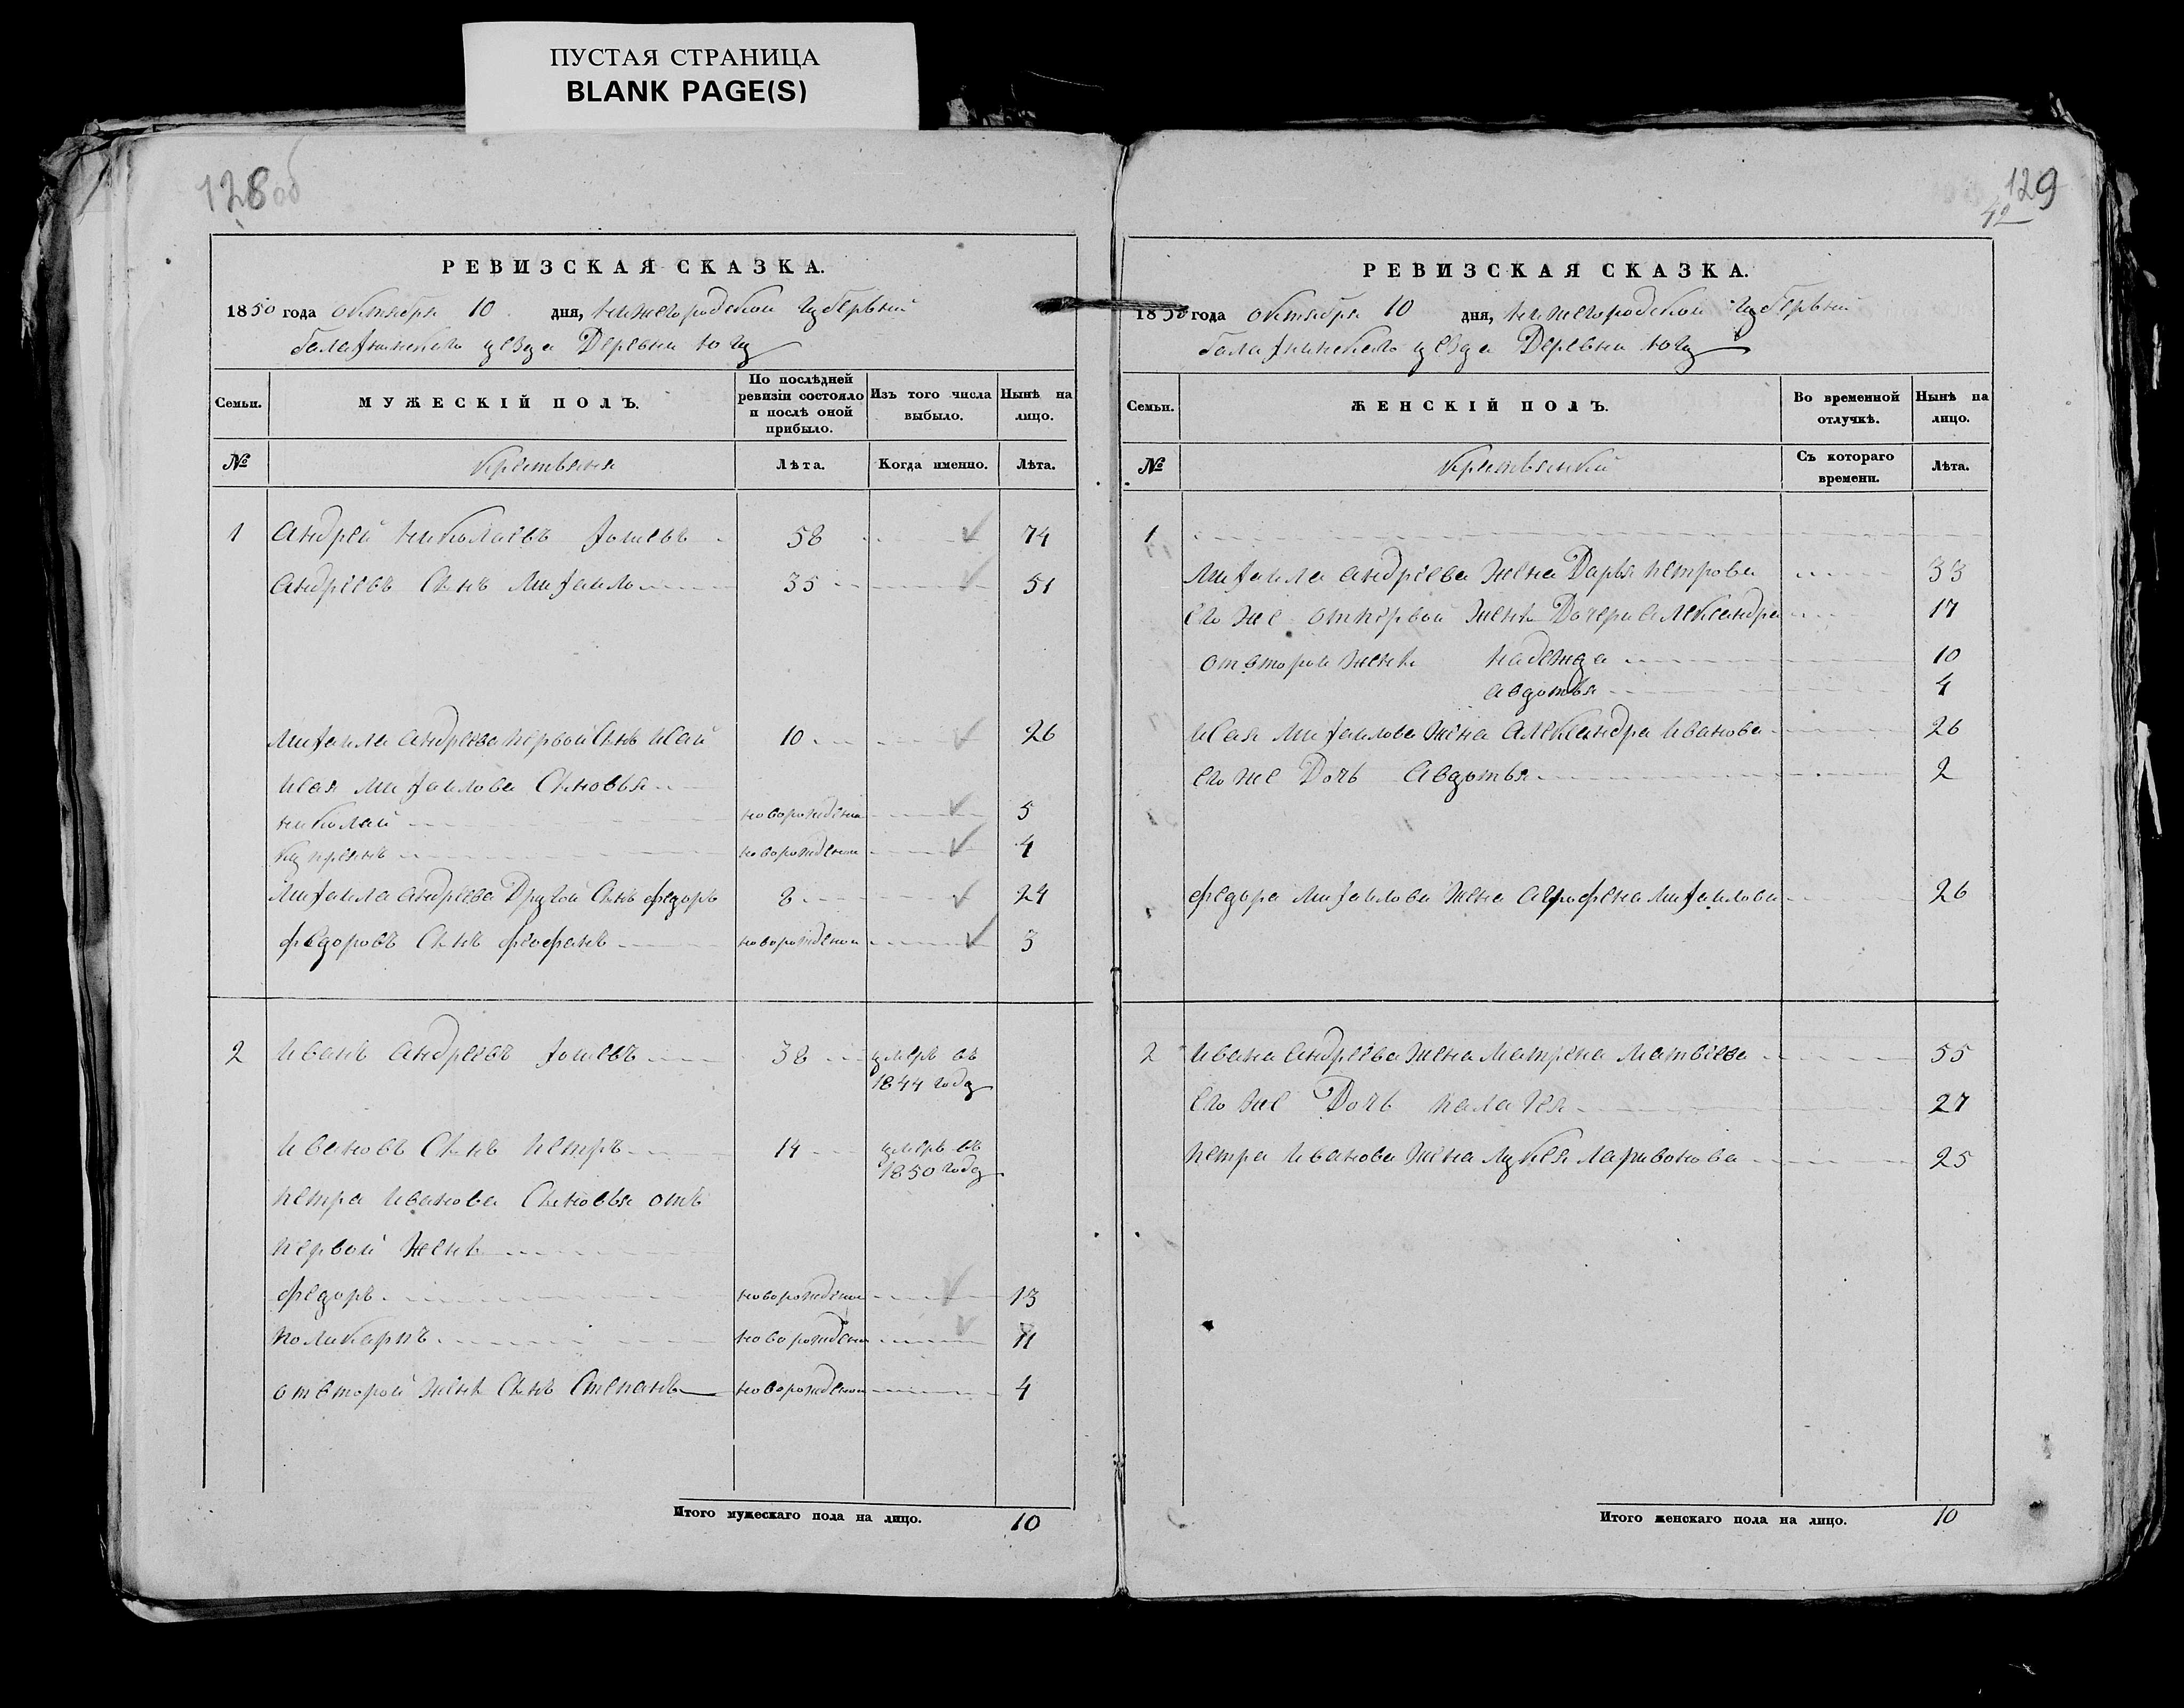 ПУСТАЯ СТРАНИЦА
BLANK PAGE(S)
128об
РЕВИЗСКАЯ СКАЗКА.
1850 года октября 10 дня, нижегородской губернии
балахнинского уезда Деревни Югу
Семьи.
МУЖЕСКІЙ ПОЛЪ.
По послѣдней ревизіи состояло и послѣ оной прибыло.
Изъ того числа выбыло.
Нынѣ на лицо.
№
крестьяня
Лѣта.
Когда именно.
Лѣта.
1 Андрей николаевъ 58 74
андреевъ Сынъ михаило 35 51
михаила андреева первой Сынъ исай 10 26
исая михаилова Сыновья
николай новорожденн 5
куприянъ новорожденн 4
михаила андреева Другой Сынъ федоръ 8 24
федоровъ Сынъ феофанъ новорожденн 3
2 иванъ андреевъ 38 умеръ въ
1844 году
ивановъ Сынъ петръ 14 умеръ въ
1850 году
петра иванова Сыновья отъ
первой жены
федоръ новорожденн 13
поликарпъ новорожденн 11
отвторой жены Сынъ Степанъ новорожденн 4
Итого мужескаго пола на лицо. 10
129
РЕВИЗСКАЯ СКАЗКА.
1850 года октября 10 дня, нижегородской губернии
балахнинского уезда Деревни Югу
Семьи.
ЖЕНСКІЙ ПОЛЪ.
Во временной отлучкѣ.
Нынѣ на лицо.
№
крестьянки
Съ котораго времени.
Лѣта.
1
михаила андреева жена Дарья петрова 33
его же отпервой жены Дочери александра 17
отвторой жены надежда 10
авдотья 4
исая михаилова жена александра иванова 26
его же Дочь авдотья 2
федора михаилова жена аграфена михаилова 26
2 ивана андреева жена матрена матвеева 55
его же Дочь палагея 27
петра иванова жена лукея ларивонова 25
Итого женскаго пола на лицо. 10